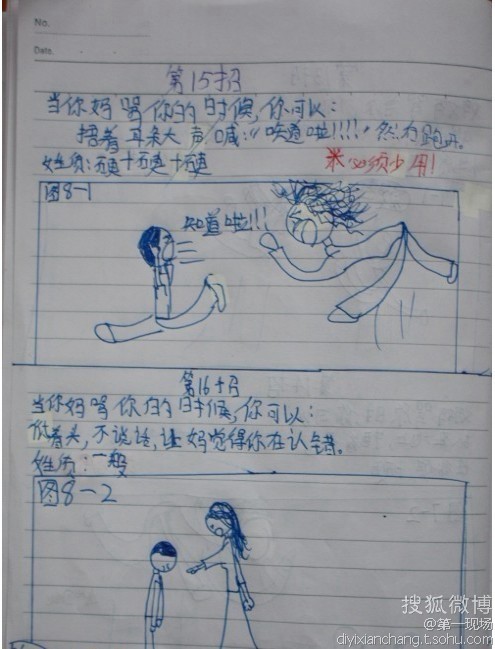 No.
Date.
第15招
当你妈骂你的时候,你可以:
捂着耳朵大声喊:“知道啦!!!!”然后跑开。
姓质:
※必须少用!
图8-1
知道啦!!!
第16招
当你妈骂你的时候,你可以:
低着头,不说话,让妈觉得你在认错。
姓质:一般
图8-2
搜狐微博
@第一现场
diyixianchang.t.sohu.com